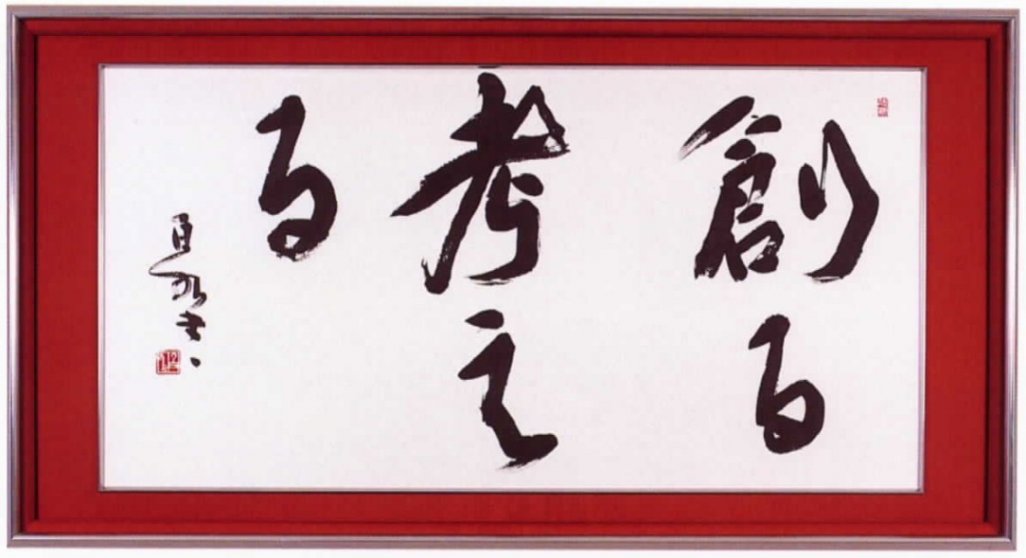 創る
考え
る